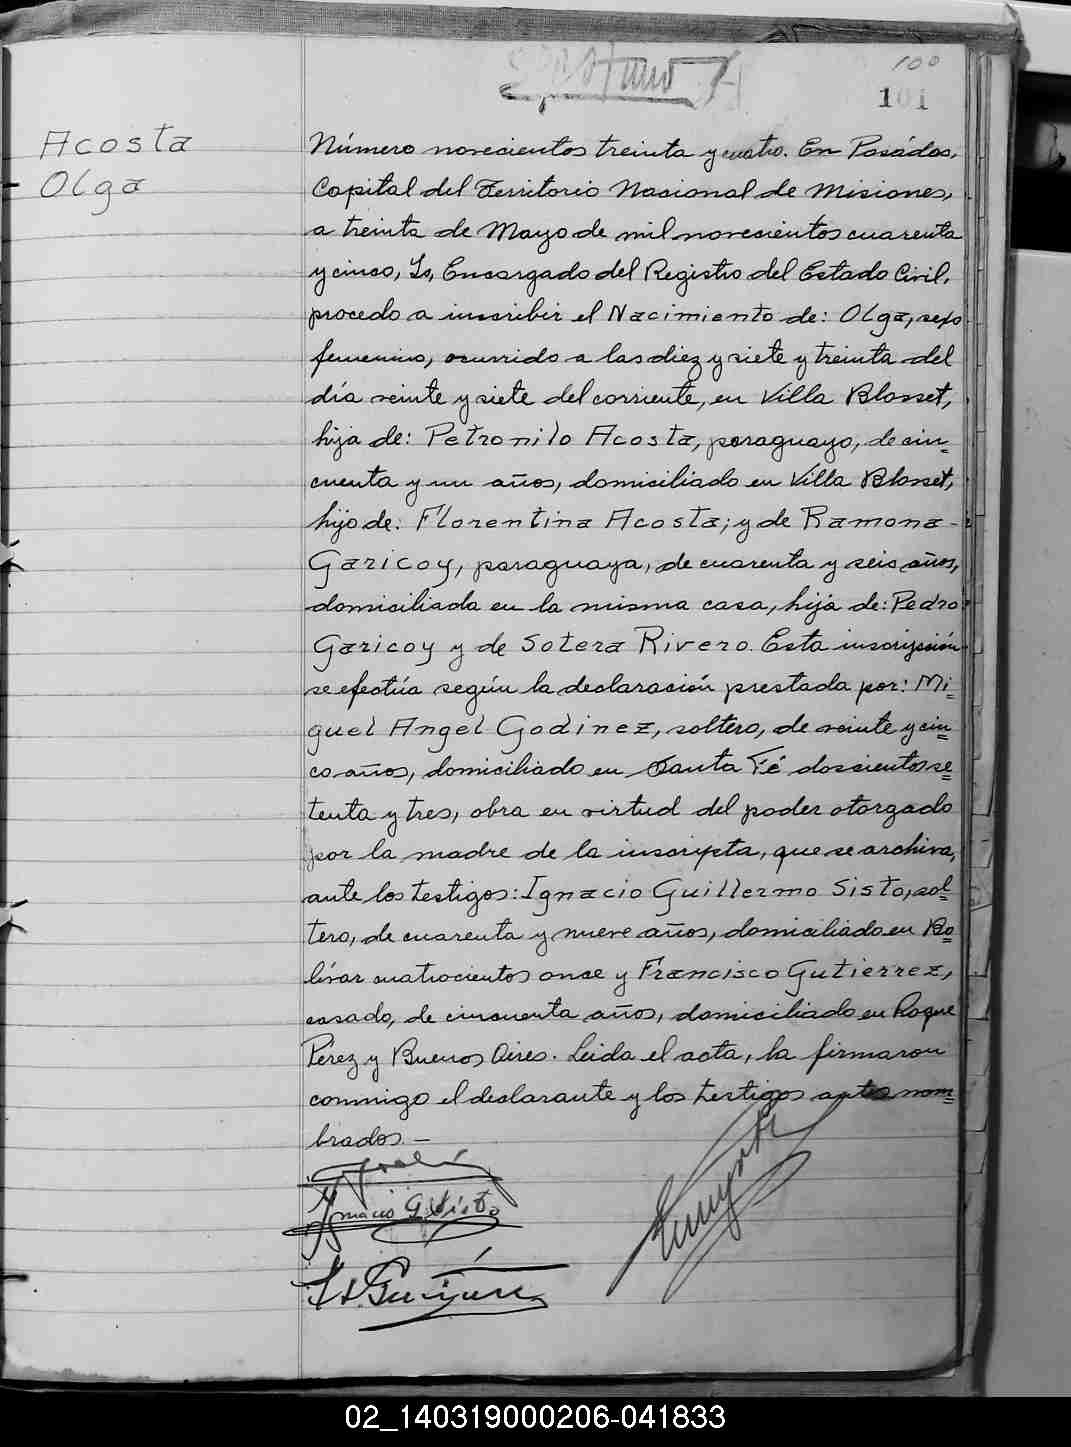 100
101
Acosta
Olga
Número novecientos treinta y cuatro. En Posadas,
Capital del Territorio Nacional de Misiones,
a treinta de Mayo de mil novecientos cuarenta
y cinco, Yo, Encargado del Registro del Estado Civil,
procedo a inscribir el Nacimiento de: Olga, sexo
femenino, ocurrido a las diez y siete y treinta del
día veinte y siete del corriente, en Villa Blosset,
hija de: Petronilo Acosta, paraguayo, de cin=
cuenta y un años, domiciliado en Villa Blosset,
hijo de: Florentina Acosta; y de Ramona-
Garicoy, paraguaya, de cuarenta y seis años,
domiciliada en la misma casa, hija de: Pedro
Garicoy y de Sotera Rivero. Esta inscripción
se efectúa según la declaración prestada por: Mi=
guel Angel Godinez, soltero, de veinte y cin=
co años, domiciliado en Santa Fé doscientos se=
tenta y tres, obra en virtud del poder otorgado
por la madre de la inscripta, que se archiva,
ante los testigos: Ignacio Guillermo Sisto, sol=
tero, de cuarenta y nueve años, domiciliado en Bo=
livar cuatrocientos once y Francisco Gutierrez,
casado, de cincuenta años, domiciliado en Roque
Pérez y Buenos Aires. Leida el acta, la firmaron
conmigo el declarante y los testigos antes nom=
brados —
Ignacio G. Sisto
02_140319000206-041833